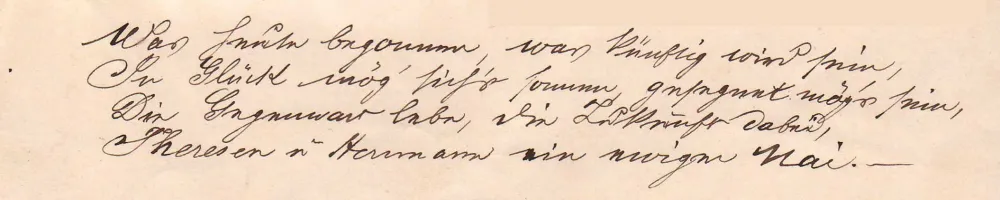 Was heute begonnen, was künftig wird sein,
In Glück mög' sich's sonnen, gesegnet mög's sein,
Die Gegenwart lebe, die Zukunft dabei,
Theresen u Herrmann ein ewiger Mai. —